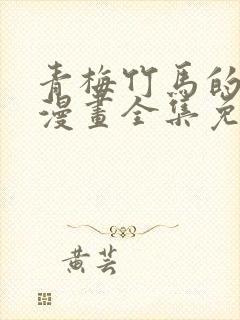 青梅竹馬的
漫畫全集免
黃芸